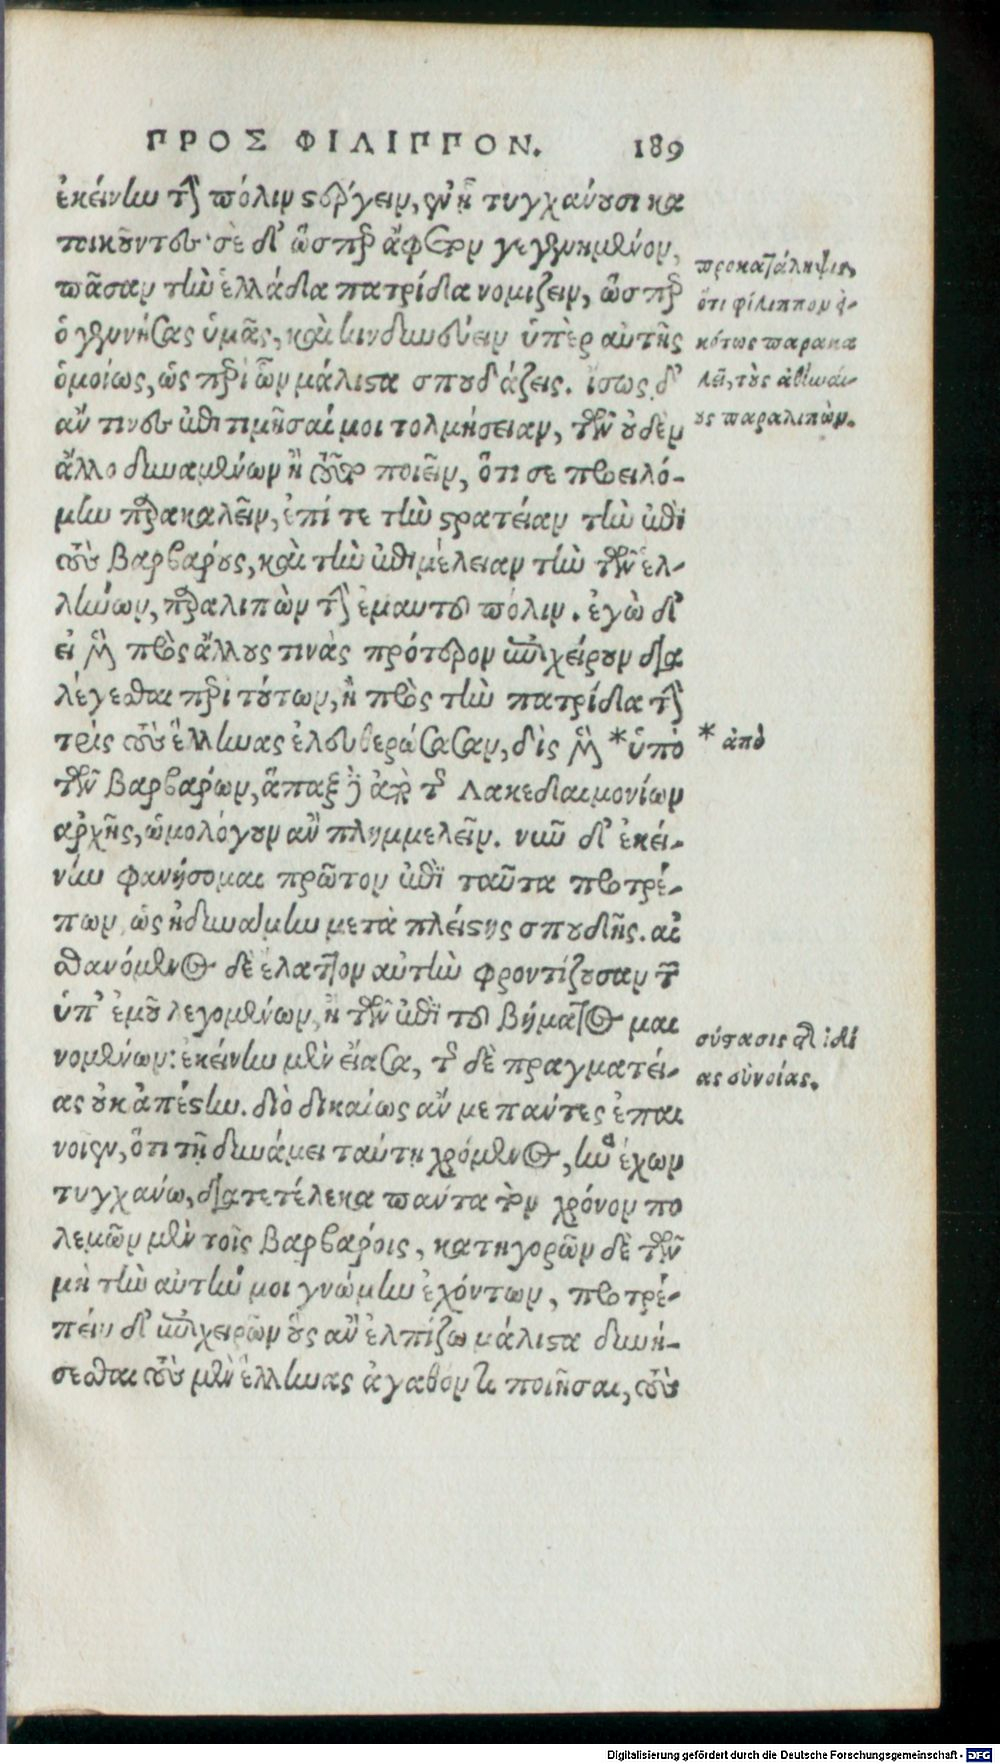 ΠΡΟΣ ΦΙΛΙΠΠΟΝ. 189
ἐκείνην τὴν πόλιν στέργειν, ἐν ᾗ τυγχάνουσι κα
τοικοῦντες· σὲ δ' ὥσπερ ἄφετον γεγενημένον,
πᾶσαν τὴν ἑλλάδα πατρίδα νομίζειν, ὥσπερ
ὁ γεννήσας ὑμᾶς, καὶ κινδυνεύειν ὑπὲρ αὐτῆς
ὁμοίως, ὥσπερ ὧν μάλιστα σπουδάζεις. ἴσως δ'
ἄν τινες ἐπιτιμῆσαί μοι τολμήσειαν, τῶν οὐδὲν
ἄλλο δυναμένων ἢ τοῦτο ποιεῖν, ὅτι σε προειλό-
μην παρακαλεῖν, ἐπί τε τὴν στρατείαν τὴν ἐπὶ
τοὺς βαρβάρους, καὶ τὴν ἐπιμέλειαν τὴν τῶν ἑλ-
λήνων, παραλιπὼν τὴν ἐμαυτοῦ πόλιν. ἐγὼ δ'
εἰ μὲν πρὸς ἄλλους τινὰς πρότερον ἐπεχείρουν δια
λέγεσθαι περὶ τούτων, ἢ πρὸς τὴν πατρίδα τὴν
τρὶς τοὺς ἕλληνας ἐλευθερώσασαν, δὶς μὲν *ὑπὸ
τῶν βαρβάρων, ἅπαξ δ' ἀπὸ τῆς Λακεδαιμονίων
ἀρχῆς, ὡμολόγουν ἂν πλημμελεῖν. νῦν δ' ἐκεί-
νην φανήσομαι πρῶτον ἐπὶ ταῦτα προτρέ-
πων, ὡς ἠδυνάμην μετὰ πλείστης σπουδῆς. αἰ
σθανόμενος δὲ ἔλαττον αὐτὴν φροντίζουσαν τῶν
ὑπ' ἐμοῦ λεγομένων, ἢ τῶν ἐπὶ τοῦ βήματος μαι
νομένων: ἐκείνην μὲν εἴασα, τῆς δὲ πραγματεί-
ας οὐκ ἀπέστην. διὸ δικαίως ἄν με πάντες ἐπαι
νοῖεν, ὅτι τῇ δυνάμει ταύτῃ χρόμενος, ἣν ἔχων
τυγχάνω, διατετέλεκα πάντα τὸν χρόνον πο
λεμῶν μὲν τοῖς βαρβάροις, κατηγορῶν δὲ τῶν
μὴ τὴν αὐτήν μοι γνώμην ἐχόντων, προτρέ-
πειν δ' ἐπιχειρῶν οὓς ἂν ἐλπίζω μάλιστα δυνή-
σεσθαι τοὺς μὲν ἕλληνας ἀγαθόν τι ποιῆσαι, τοὺς
προκατάληψις,
ὅτι φίλιππον εἰ-
κότως παρακα
λεῖ, τοὺς ἀθηναί-
ους παραλιπών.
* ἀπὸ
σύστασις τῆς ἰδί
ας εὐνοίας.
Digitalisierung gefördert durch die Deutsche Forschungsgemeinschaft - DFG